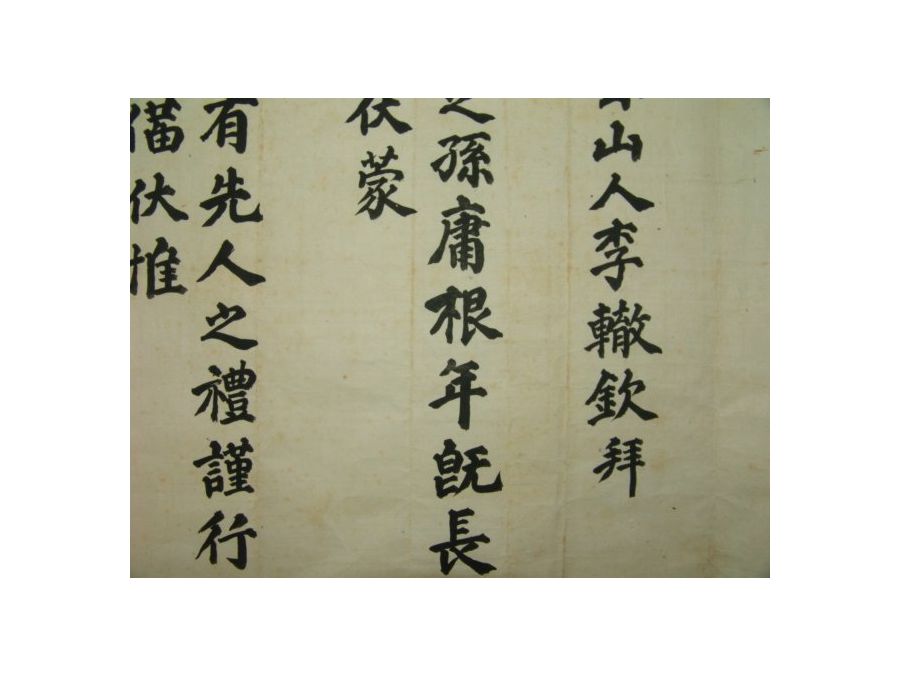 山人李轍欽拜
之孫庸根年既長
伏蒙
有先人之禮謹行
伏惟